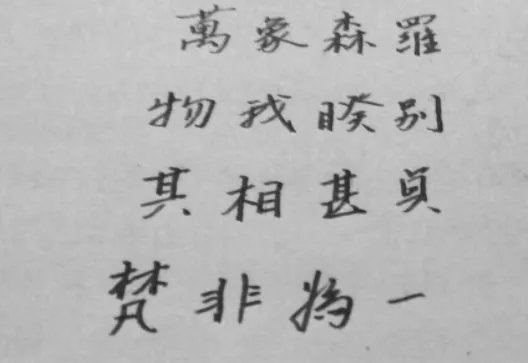 萬象森羅
物我睽別
其相甚貞
梵非為一